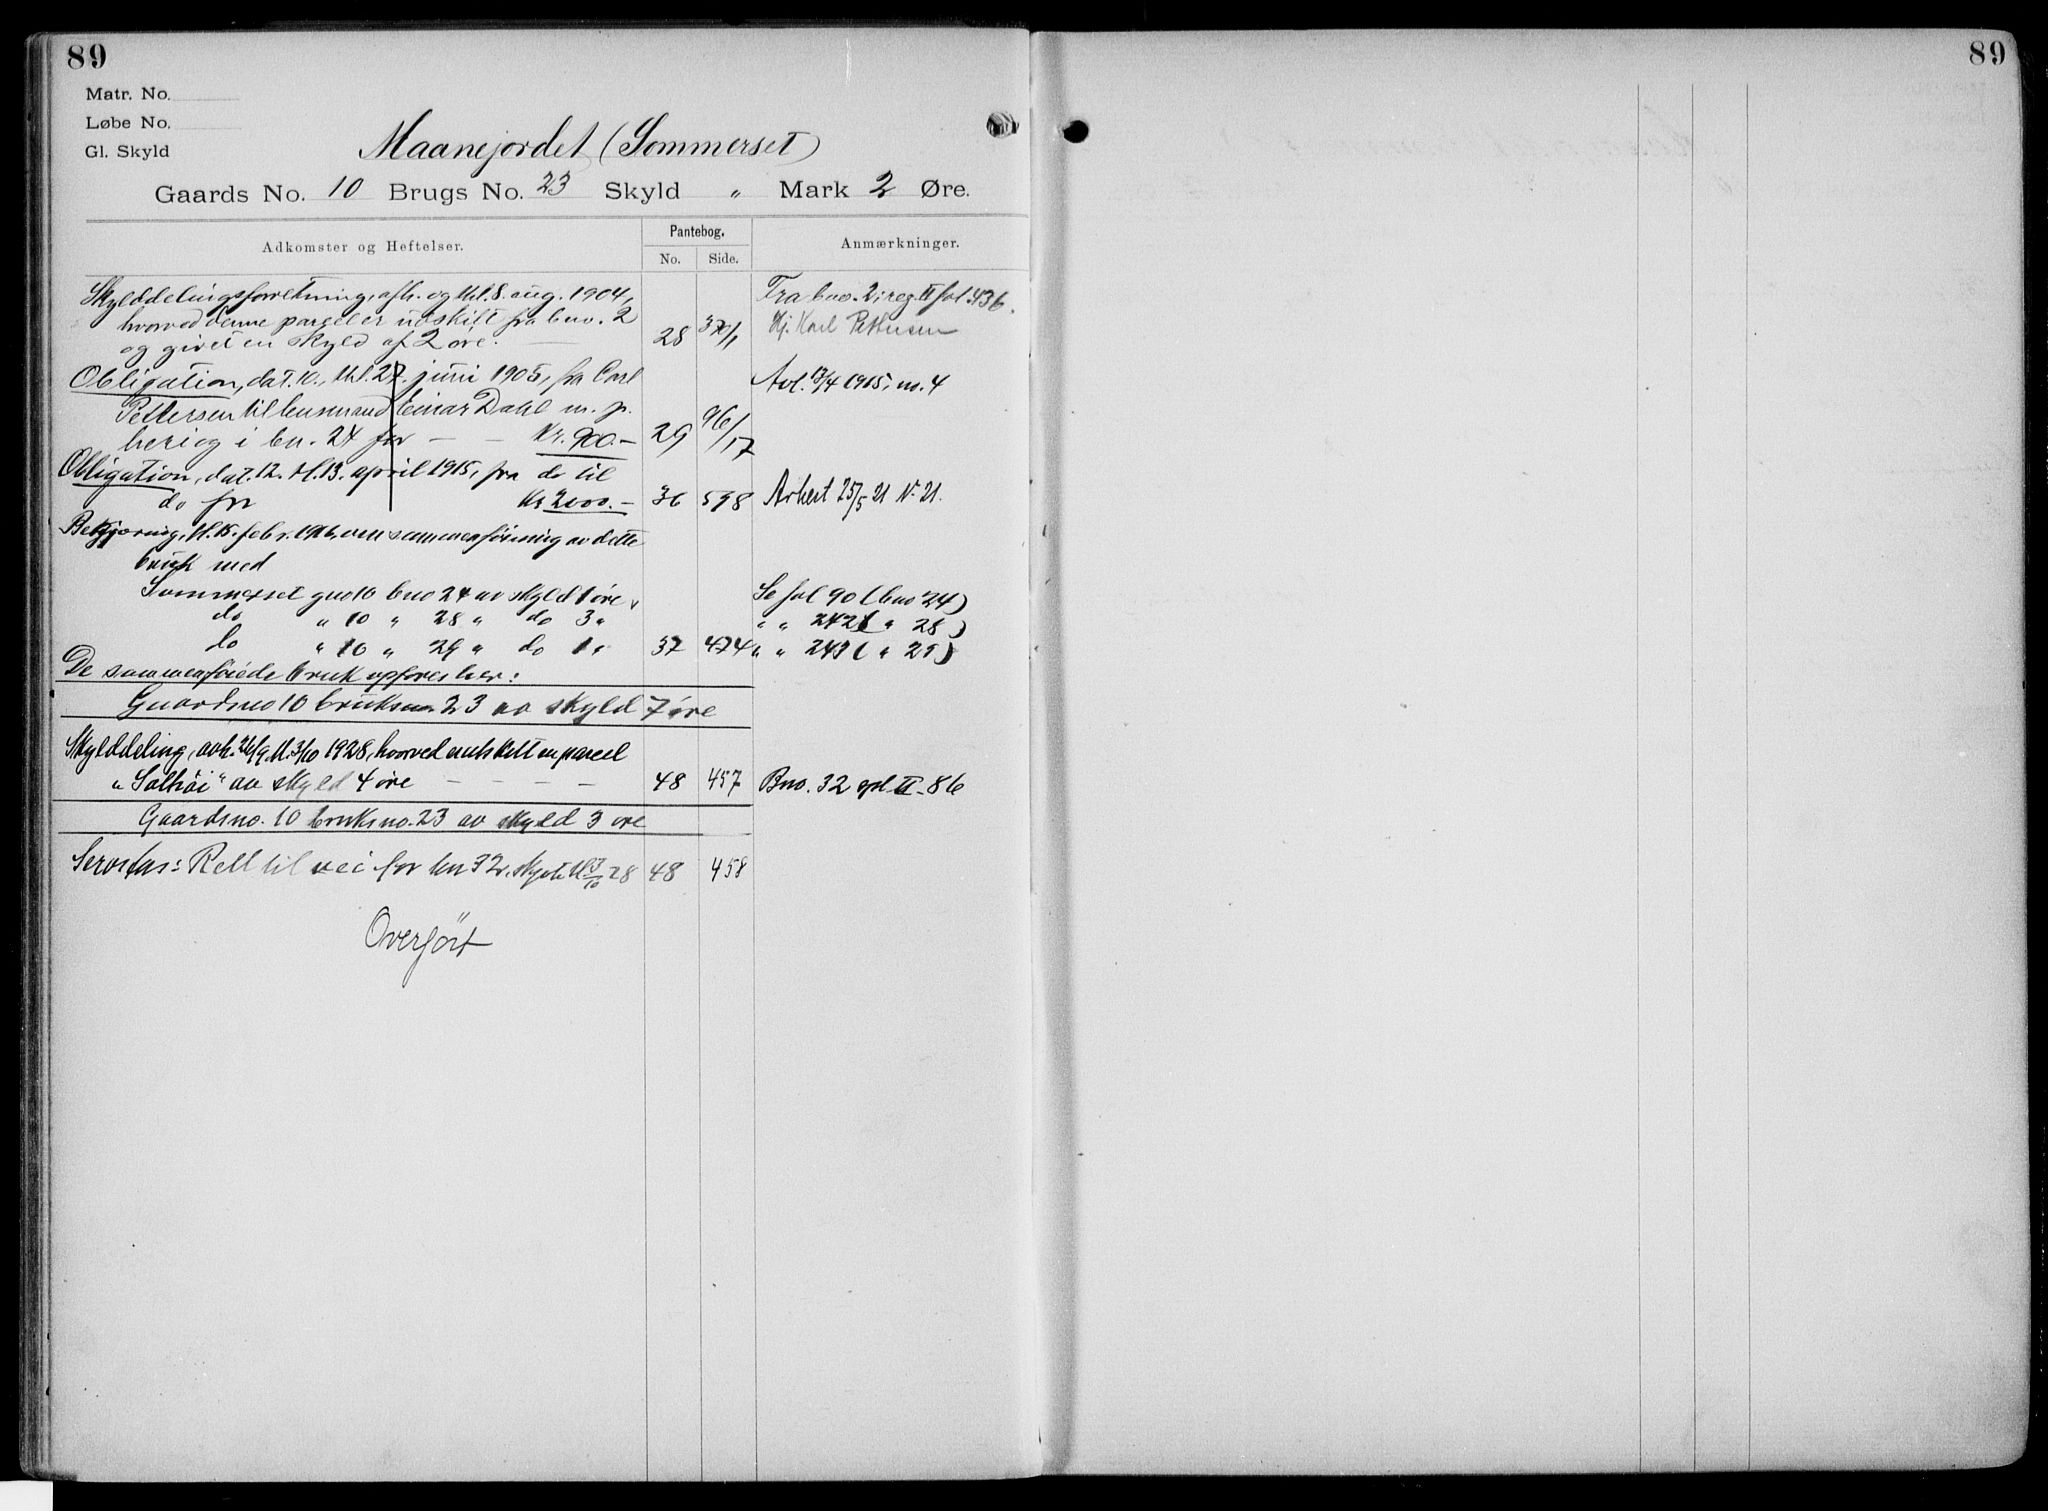 89
89
Matr. No.
Løbe No.
Gl. Skyld
Maanejordet (Sommerset)
Gaards No. 10 Brugs No. 23 Skyld " Mark 2 Øre.
Adkomster og Heftelser.
Pantebog.
No. Side.
Anmærkninger.
Skylddelingsforretning, afh. og thl. 8. aug. 1904, Fra bno. 2 i reg. II fol 436.
hvorved denne parsel er udskilt fra bno. 2 Hj. Karl Pettersen
og givet en skyld af 2 øre. 28 370/1
Obligation, dat. 10., thl. 27. juni 1905, fra Carl Avl. 13/4 1915, n. 4
Pettersen til husmand Einar Dahl m. p.
heri og i bn. 24 for — — Kr. 900.— 29 96/17
Obligation, dat. 12. tl. 13. april 1915, fra do til
do for Kr 2000.— 36 598 Avlest 25/5 21 N. 21.
Begjæring, tl. 15. febr. 1916, om sammenføining av dette
bruk med
Sommerset gno 10 bno 24 av skyld 1 øre, Se fol 90 (bno 24)
do " 10 " 28 " do 3 " " " 242 ( " 28 )
do " 10 " 29 " do 1 " 37 474 " " 243 ( " 29 )
De sammenføiede bruk opføres her:
Gaardsno 10 bruksno 23 av skyld 7 øre
Skylddeling, avh. 26/9 tl. 3/10 1928, hvorved utskilt en parcel
"Solhøi" av skyld 4 øre — — — — 48 457 Bno. 32 II - 86
Gaardsno. 10 bruksno. 23 av skyld 3 øre
Servitus: Rett til vei for bn 32, skjøte tl 3/10 28 48 458
Overført